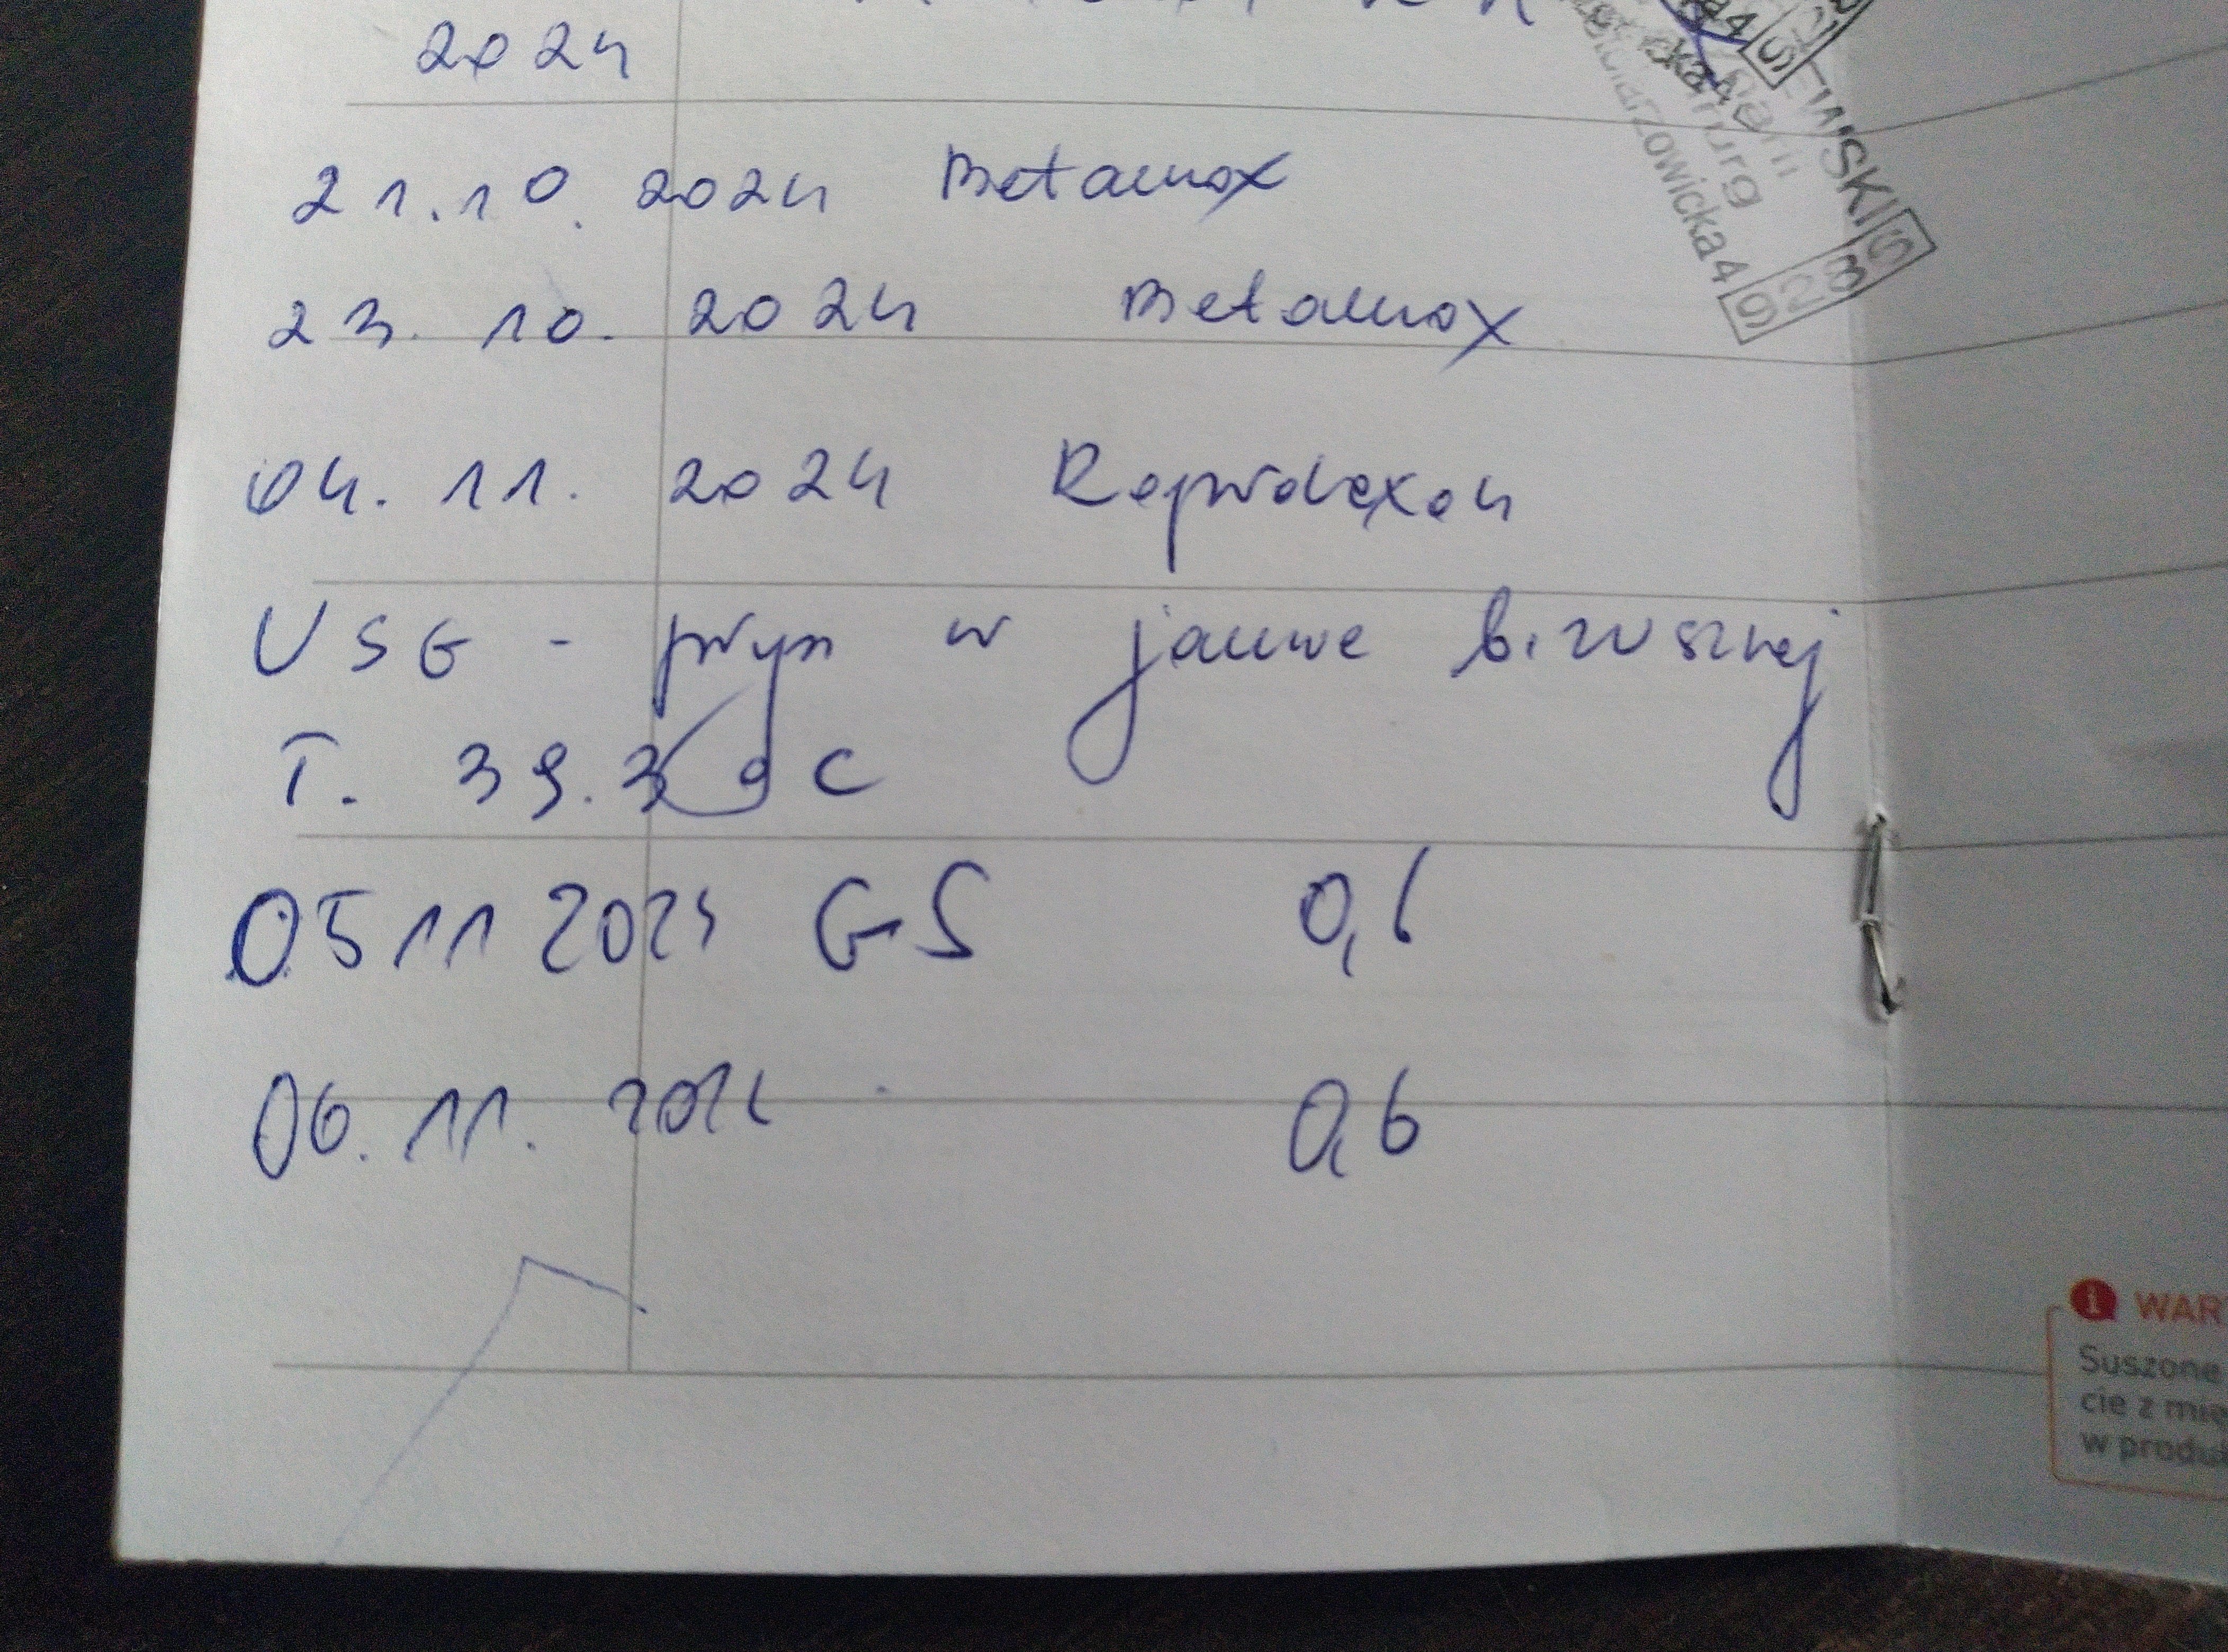 2024
21.10.2024 Betamox
23.10.2024 Betamox
04.11.2024 Rapidexon
USG - płyn w jamie brzusznej
T. 39.3 °C
05 11 2024 GS 0,6
06.11.2024 0,6
EWSKI
chirurg
9283S
WAR
Suszone
cie z mię
w produk